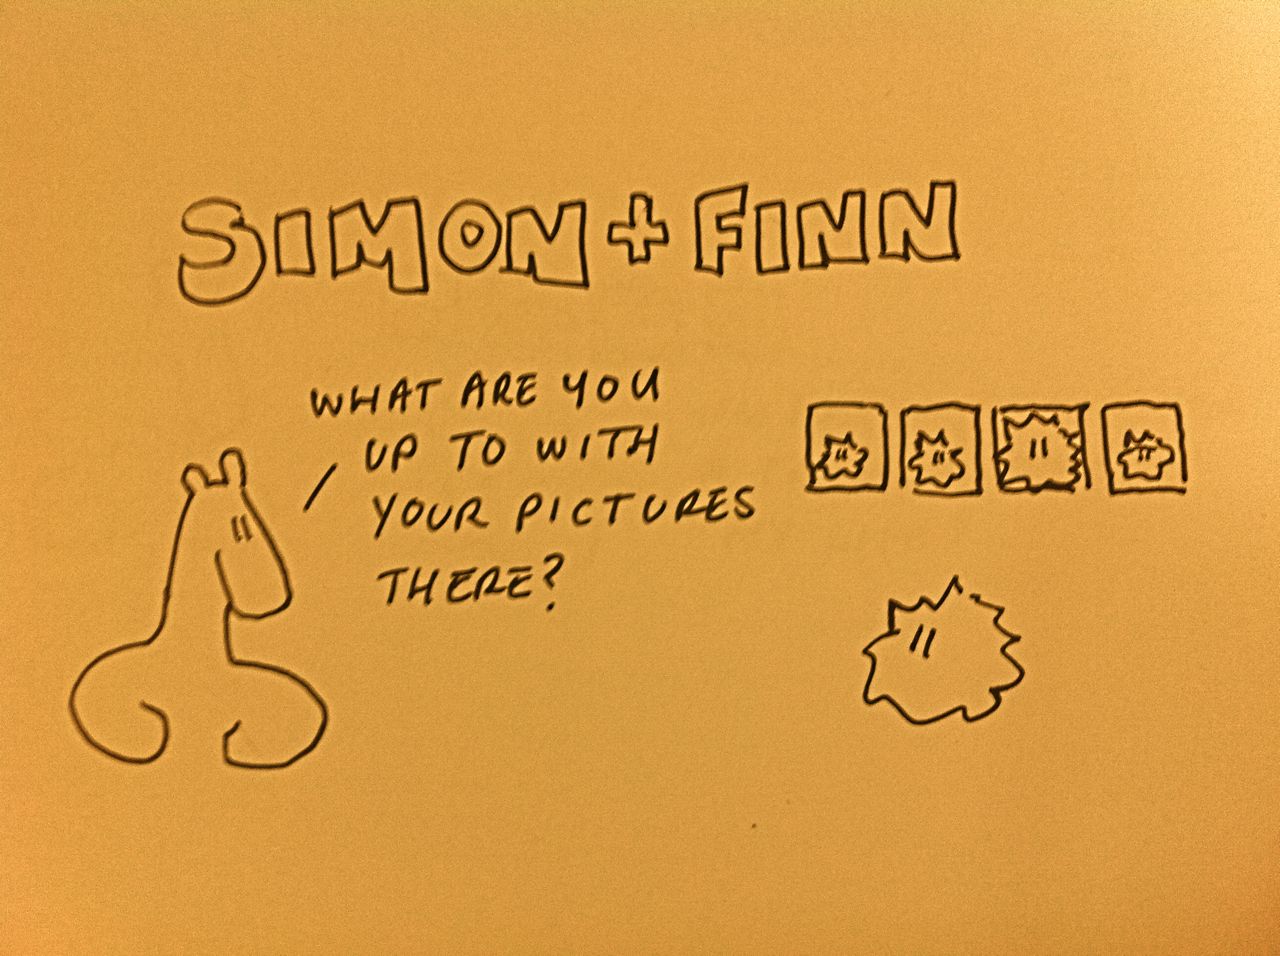 SIMON + FINN
WHAT ARE YOU
UP TO WITH
YOUR PICTURES
THERE?